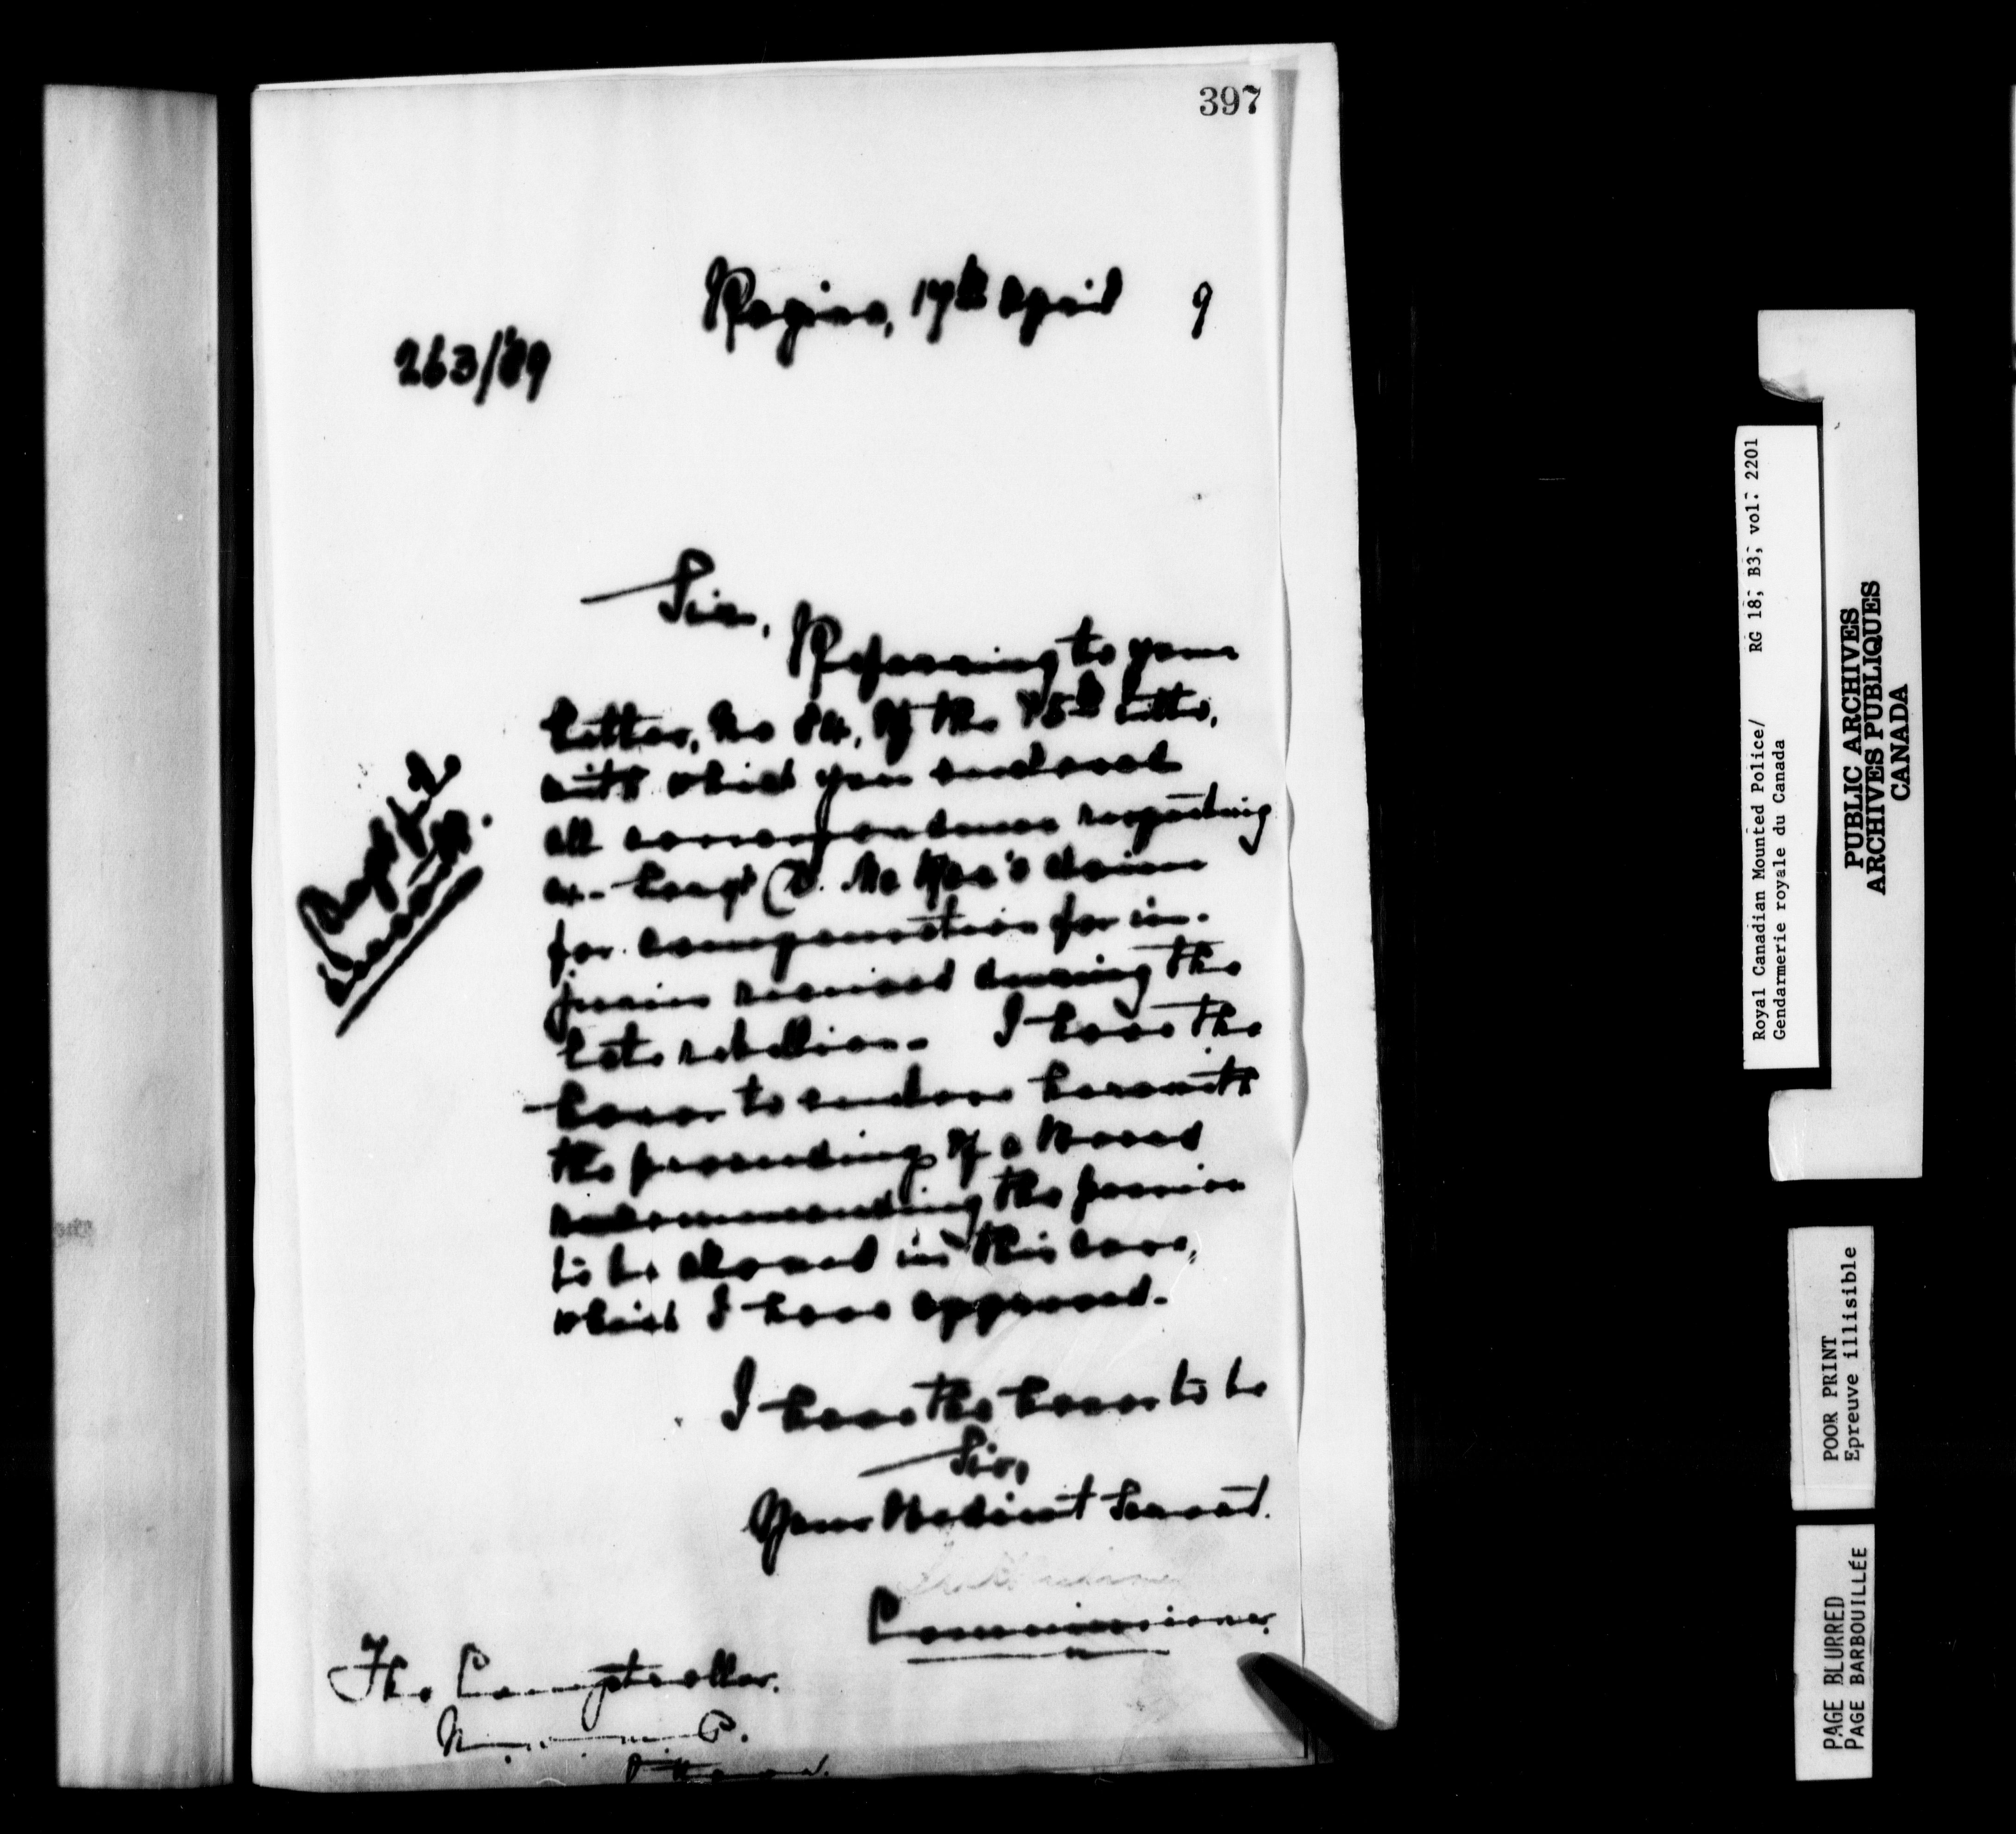 397
Regina, 17th April 9
263/89
Sir,
Referring to your
letter, No 84, of the 15th
with which you enclosed
all correspondence respecting
ex-Corpl McRae's claim
for compensation for in-
juries received during the
late rebellion - I have the
honor to enclose herewith
the proceedings of a Board
recommending the pension
to be allowed in this case,
which I have approved.
I have the honor to be
Sir,
Your Obedient Servant.
Commissioner.
The Comptroller.
N. W. M. P.
Ottawa.
Royal Canadian Mounted Police/ RG 18; B3; vol: 2201
Gendarmerie royale du Canada
PUBLIC ARCHIVES
ARCHIVES PUBLIQUES
CANADA
POOR PRINT
Epreuve illisible
PAGE BLURRED
PAGE BARBOUILLÉE